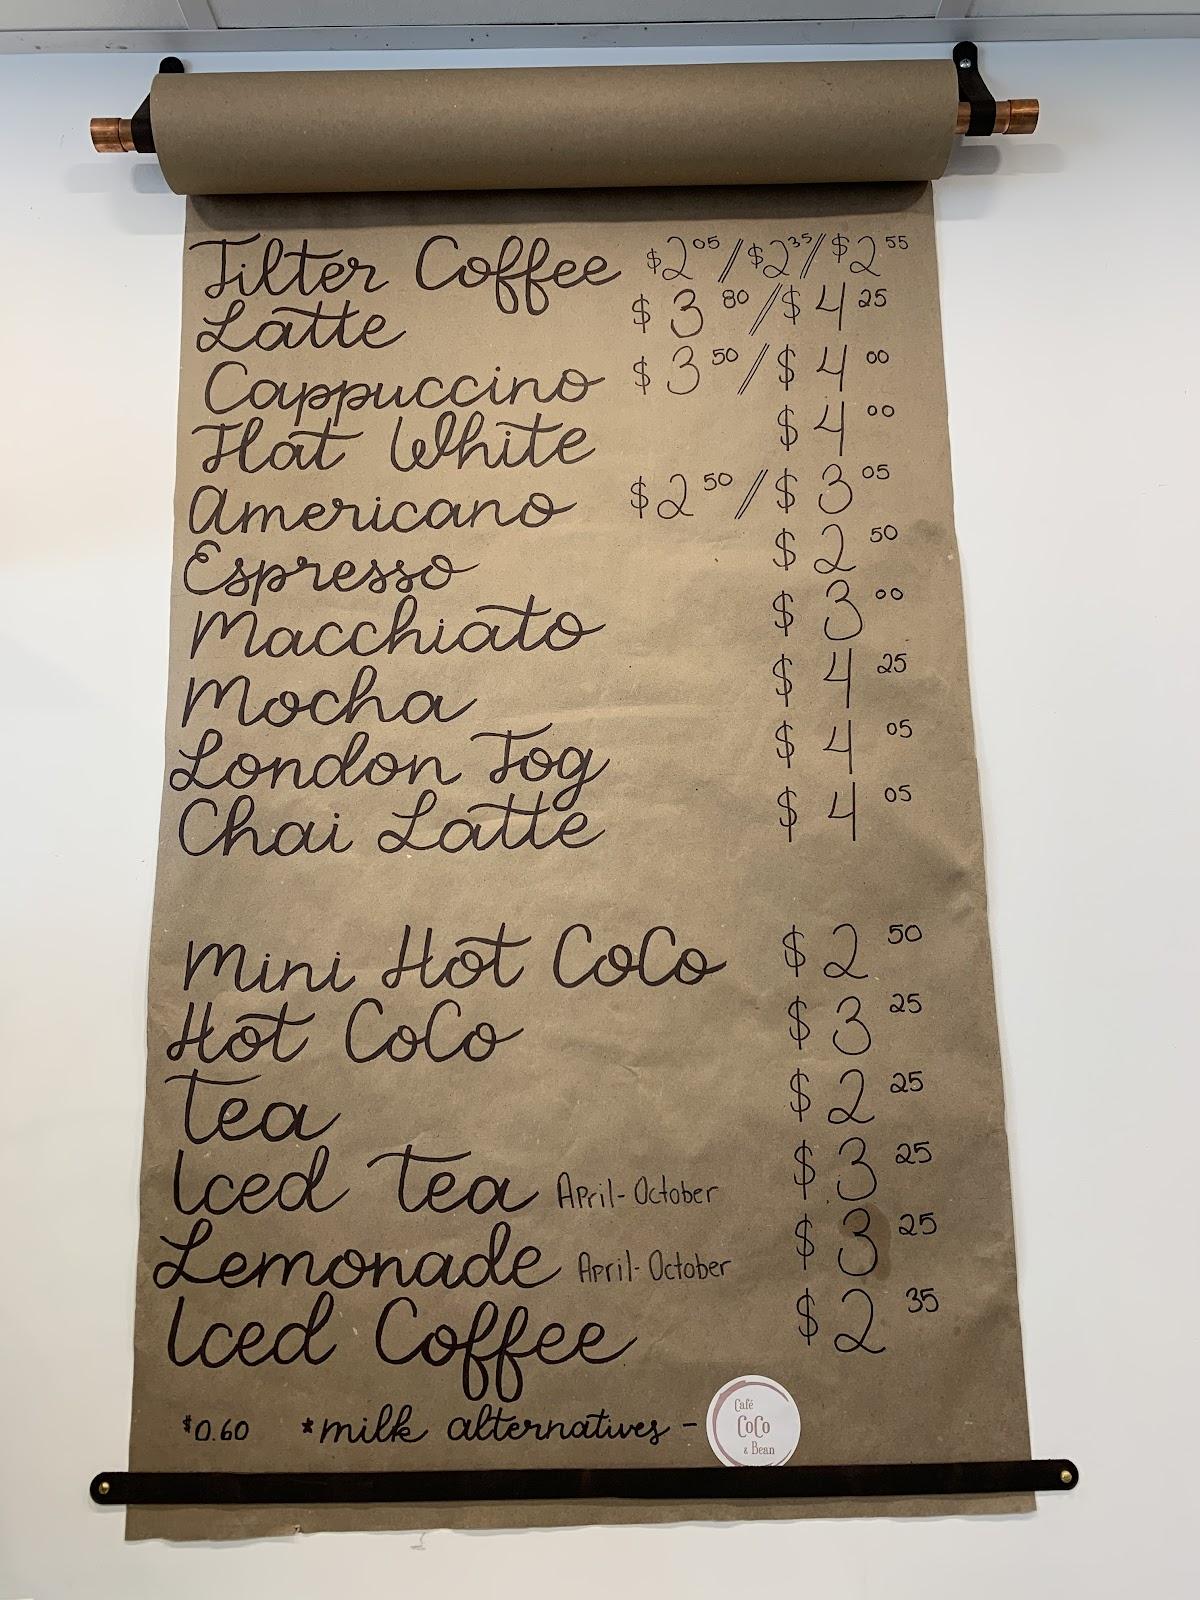 Filter Coffee $2.05/$2.35/$2.55
Latte $3.80//$4.25
Cappuccino $3.50//$4.00
Flat White $4.00
Americano $2.50//$3.05
Espresso $2.50
Macchiato $3.00
Mocha $4.25
London Fog $4.05
Chai Latte $4.05
Mini Hot CoCo $2.50
Hot CoCo $3.25
Tea $2.25
Iced Tea April-October $3.25
Lemonade April-October $3.25
Iced Coffee $2.35
$0.60 *milk alternatives -
Café
CoCo
& Bean